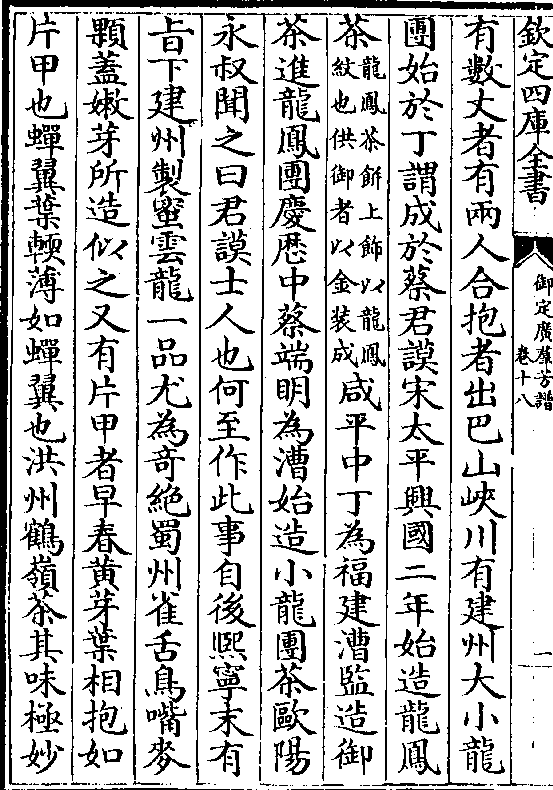 欽定四庫全書
御定廣羣芳譜
卷十八
一
有數丈者有兩人合抱者出巴山峽川有建州大小龍
團始於丁謂成於蔡君謨宋太平興國二年始造龍鳳
茶龍鳳茶餅上飾以龍鳳紋也供御者以金装成咸平中丁為福建漕監造御
茶進龍鳳團慶厯中蔡端明為漕始造小龍團茶歐陽
永叔聞之曰君謨士人也何至作此事自後熙寧末有
㫖下建州製蜜雲龍一品尤為竒絶蜀州雀舌鳥嘴麥
顆蓋嫩芽所造似之又有片甲者早春黄芽葉相抱如
片甲也蟬翼葉輭薄如蟬翼也洪州鶴嶺茶其味極妙